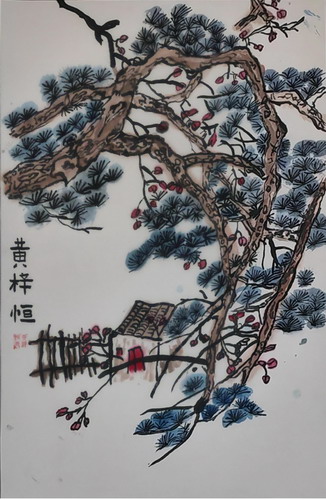 黄梓恒